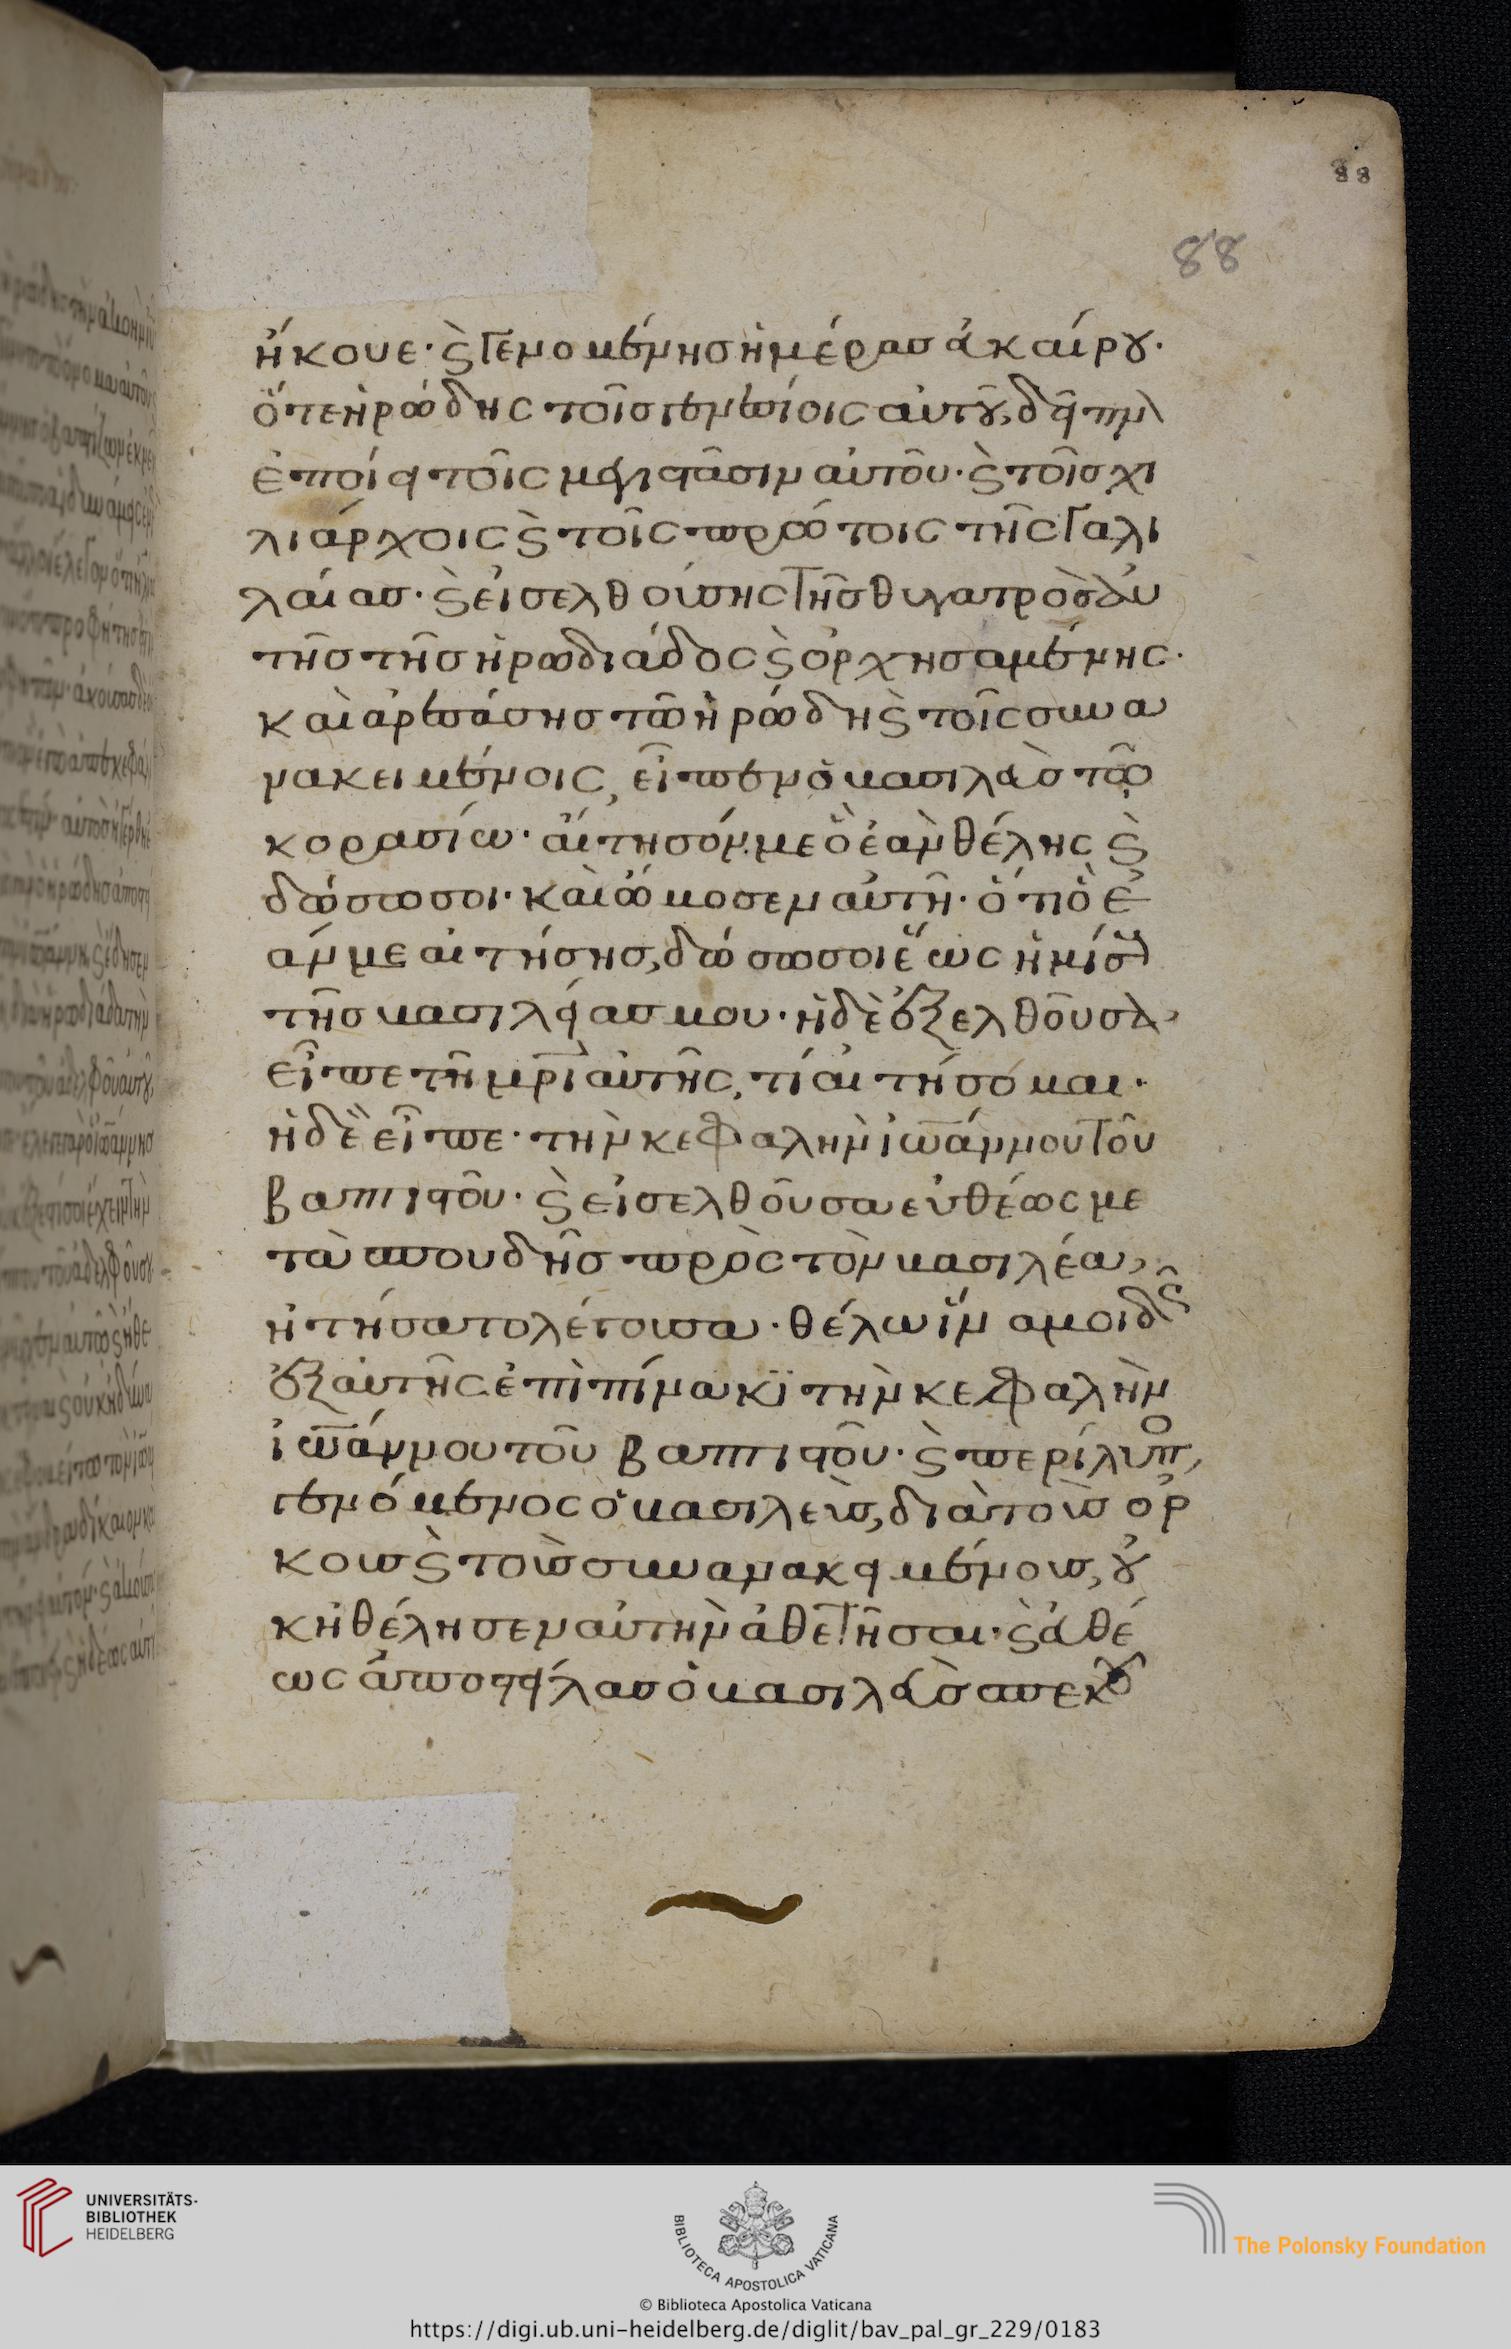 88
88
ἤκουε· ϗ γενομένης ἡμέρας ἀκαίρου·
ὅτε ἡρώδης τοῖς γενεσίοις αὐτοῦ, δεῖπν
ἐποίει τοῖς μεγιστᾶσιν αὐτοῦ· ϗ τοῖς χι
λιάρχοις ϗ τοῖς πρώτοις τῆς γαλι
λαίας· ϗ εἰσελθούσης τῆς θυγατρὸς αὐ
τῆς τῆς ἡρωδιάδος ϗ ὀρχησαμένης·
καὶ ἀρεσάσης τῶ ἡρώδη ϗ τοῖς συνα
νακειμένοις, εἶπεν ὁ βασιλεὺς τῶ
κορασίω· αἴτησόν με ὃ ἐὰν θέλης ϗ
δώσω σοι· καὶ ὤμοσεν αὐτῆ· ὅτι ὃ ἐ
άν με αἰτήσης, δώσω σοι ἕως ἡμίσυ
τῆς βασιλείας μου· ἡ δὲ ἐξελθοῦσα
εἶπε τῆ μρὶ αὐτῆς, τί αἰτήσομαι·
ἡ δὲ εἶπε· τὴν κεφαλὴν ἰωάννου τοῦ
βαπτιστοῦ· ϗ εἰσελθοῦσα εὐθέως με
τὰ σπουδῆς πρὸς τὸν βασιλέα,
ἠτήσατο λέγουσα· θέλω ἵνα μοι δῷς
ἐξαὐτῆς ἐπὶ πίνακι τὴν κεφαλὴν
ἰωάννου τοῦ βαπτιστοῦ· ϗ περίλυπος
γενόμενος ὁ βασιλεὺς, διὰ τοὺς ὅρ
κους ϗ τοὺς συνανακειμένους, οὐ
κ ἠθέλησεν αὐτὴν ἀθετῆσαι· ϗ εὐθέ
ως ἀποστείλας ὁ βασιλεὺς σπεκου
UNIVERSITÄTS-
BIBLIOTHEK
HEIDELBERG
BIBLIOTECA APOSTOLICA VATICANA
The Polonsky Foundation
© Biblioteca Apostolica Vaticana
https://digi.ub.uni-heidelberg.de/diglit/bav_pal_gr_229/0183